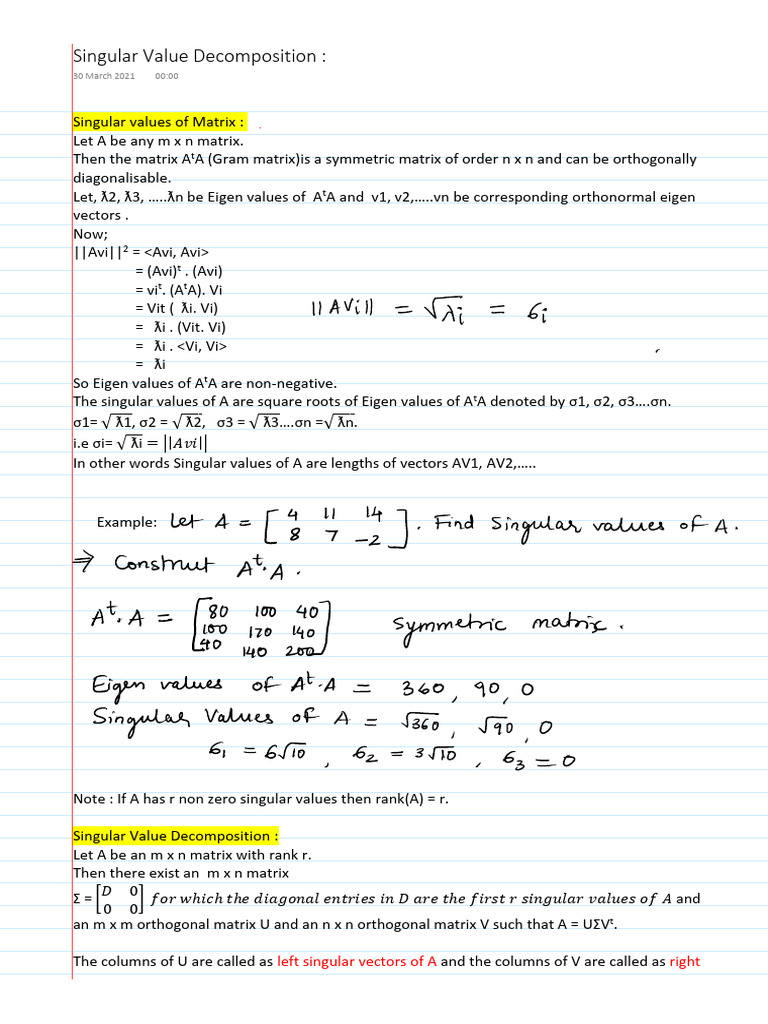 Singular Value Decomposition :
30 March 2021 00:00
Singular values of Matrix :
Let A be any m x n matrix.
Then the matrix AᵗA (Gram matrix)is a symmetric matrix of order n x n and can be orthogonally
diagonalisable.
Let, ƛ2, ƛ3, …..ƛn be Eigen values of AᵗA and v1, v2,…..vn be corresponding orthonormal eigen
vectors .
Now;
||Avi||² = <Avi, Avi>
= (Avi)ᵗ . (Avi)
= viᵗ. (AᵗA). Vi
= Vit ( ƛi. Vi)
||AVi|| = √λi = σi
= ƛi . (Vit. Vi)
= ƛi . <Vi, Vi>
= ƛi
So Eigen values of AᵗA are non-negative.
The singular values of A are square roots of Eigen values of AᵗA denoted by σ1, σ2, σ3….σn.
σ1= √ƛ1, σ2 = √ƛ2, σ3 = √ƛ3….σn =√ƛn.
i.e σi= √ƛi = ||Avi||
In other words Singular values of A are lengths of vectors AV1, AV2,…..
Example: Let A = [4 11 14
8 7 -2] . Find Singular values of A.
⇒ Construct Aᵗ.A .
Aᵗ.A = [80 100 40
100 170 140
40 140 200] Symmetric matrix.
Eigen values of Aᵗ.A = 360, 90, 0
Singular Values of A = √360, √90, 0
σ₁ = 6√10, σ₂ = 3√10, σ₃ = 0
Note : If A has r non zero singular values then rank(A) = r.
Singular Value Decomposition :
Let A be an m x n matrix with rank r.
Then there exist an m x n matrix
Σ = [D 0
0 0] for which the diagonal entries in D are the first r singular values of A and
an m x m orthogonal matrix U and an n x n orthogonal matrix V such that A = UΣVᵗ.
The columns of U are called as left singular vectors of A and the columns of V are called as right